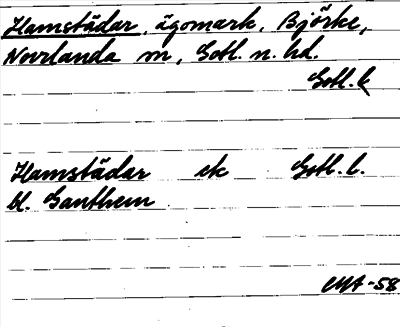 Hamstädar, ägomark, Björke,
Norrlanda sn, Gotl. n. hd.
Gotl. l.
Hamstädar ek Gotl. l.
bl. Ganthem
-58